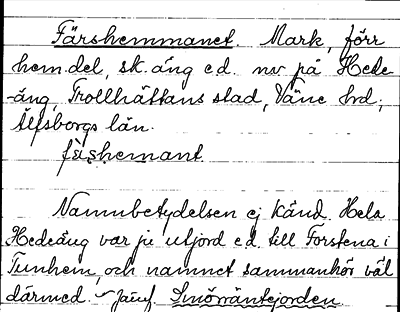 Färshemmanet. Mark, förr
hem.del, sk. äng e d. nv på Hede-
-äng, Trollhättans stad, Väne hd,
Älfsborgs län.
fäʂhemant
Namnbetydelsen ej känd. Hela
Hedeäng var ju utjord e.d. till Forstena i
Tunhem, och namnet sammanhör väl
därmed – jämf. Smörräntejorden